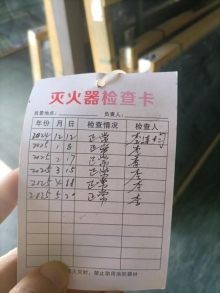 灭火器检查卡
放置地点: 负责人:
年份 月 日 检查情况 检查人
2024 12 12 正常 李
2025 1 8 正常 李
2025 2 17 正常 李
2025 3 15 正常 李
2025 4 18 正常 李
2025 5 20 正常 李